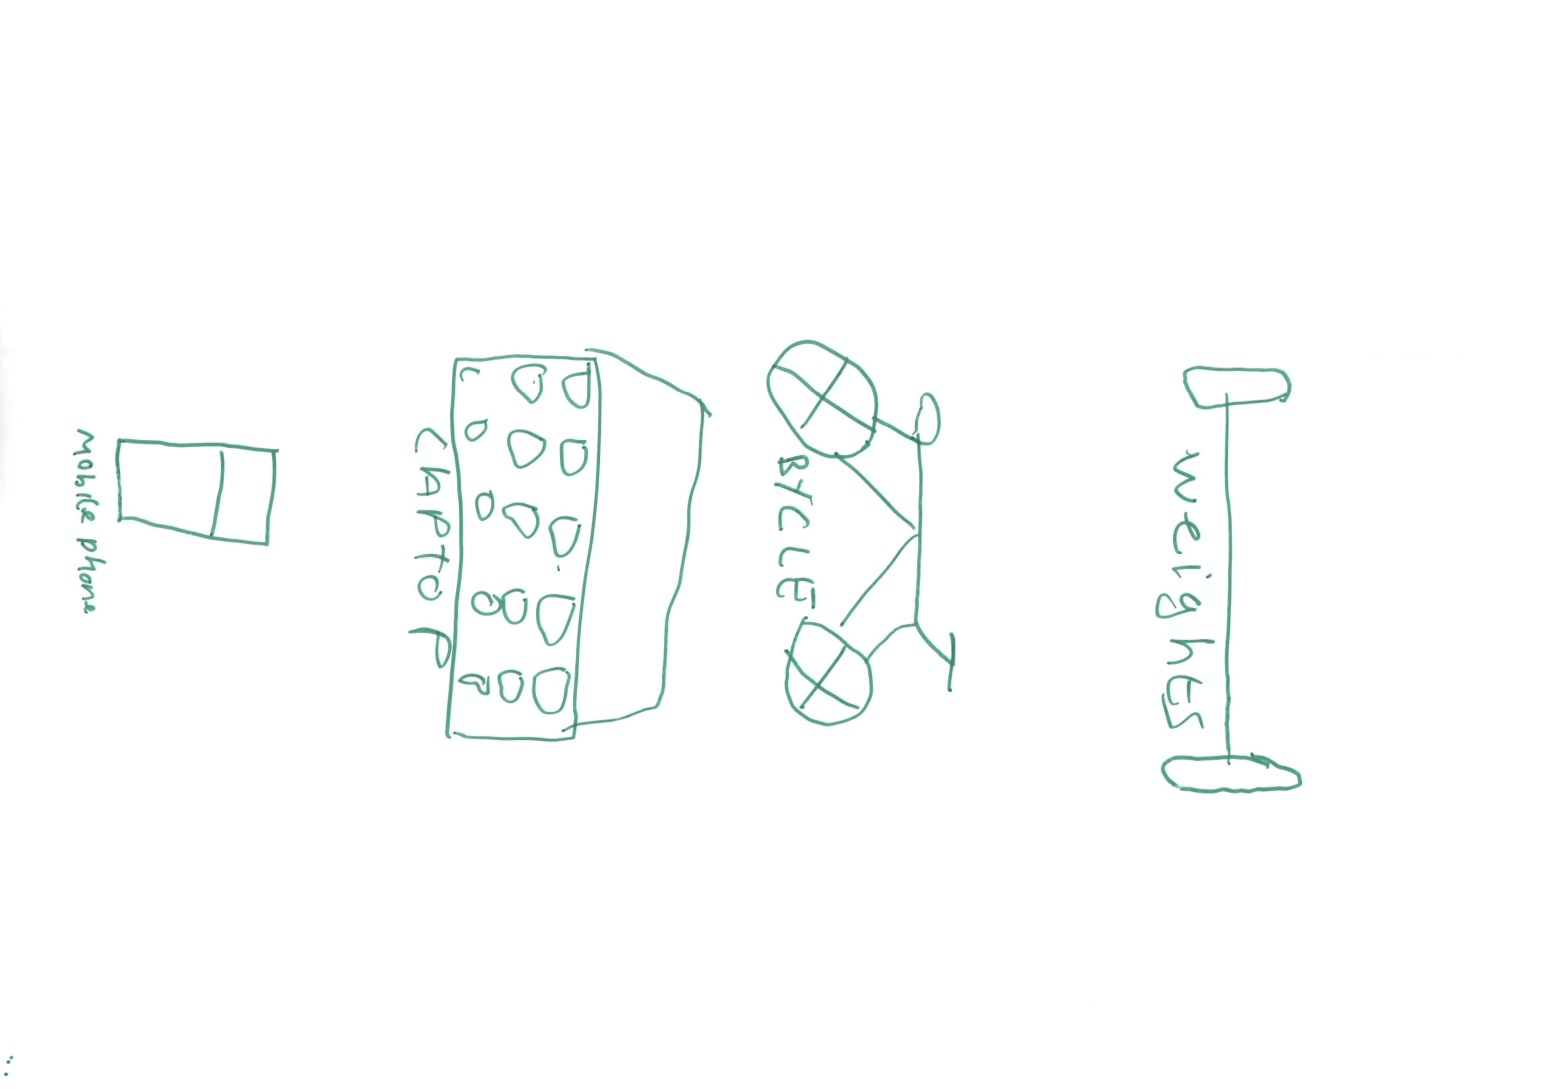 weights
BYCLE
ChPToP
mobile phone